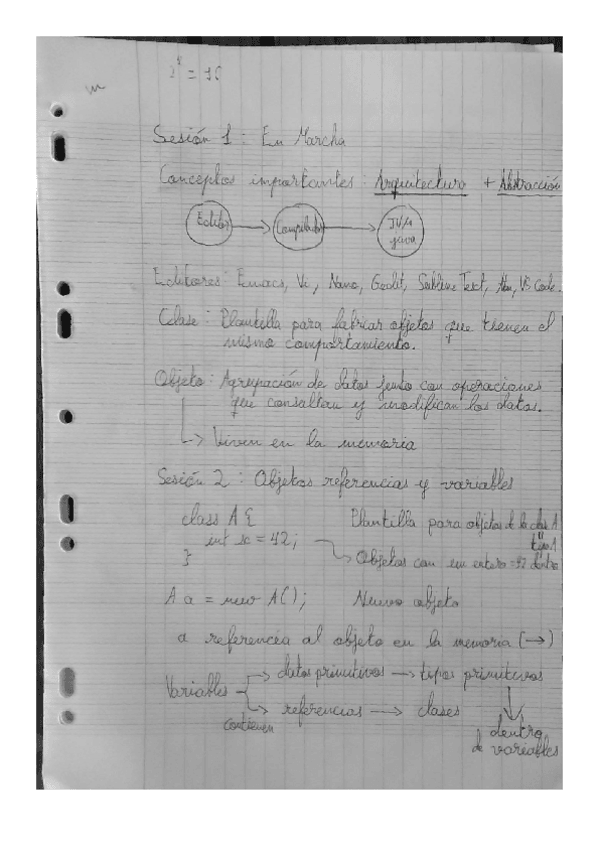 = 16
Sesión 1: En Marcha
Conceptos importantes: Arquitectura + Abstracción
Editor → Compilador → JVM java
Editores: Emacs, Vi, Nano, Gedit, Sublime Text, VS Code.
Clase: Plantilla para fabricar objetos que tienen el
mismo comportamiento.
Objeto: Agrupación de datos junto con operaciones
que consultan y modifican los datos.
↳ Viven en la memoria
Sesión 2: Objetos referencias y variables
class A { Plantilla para objetos de la clase A
int x = 42; tipo A
} → Objetos con un entero = 42 dentro
A a = new A(); Nuevo objeto
a referencia al objeto en la memoria (→)
→ datos primitivos → tipos primitivos
Variables
→ referencias → clases
contienen
dentro
de variables